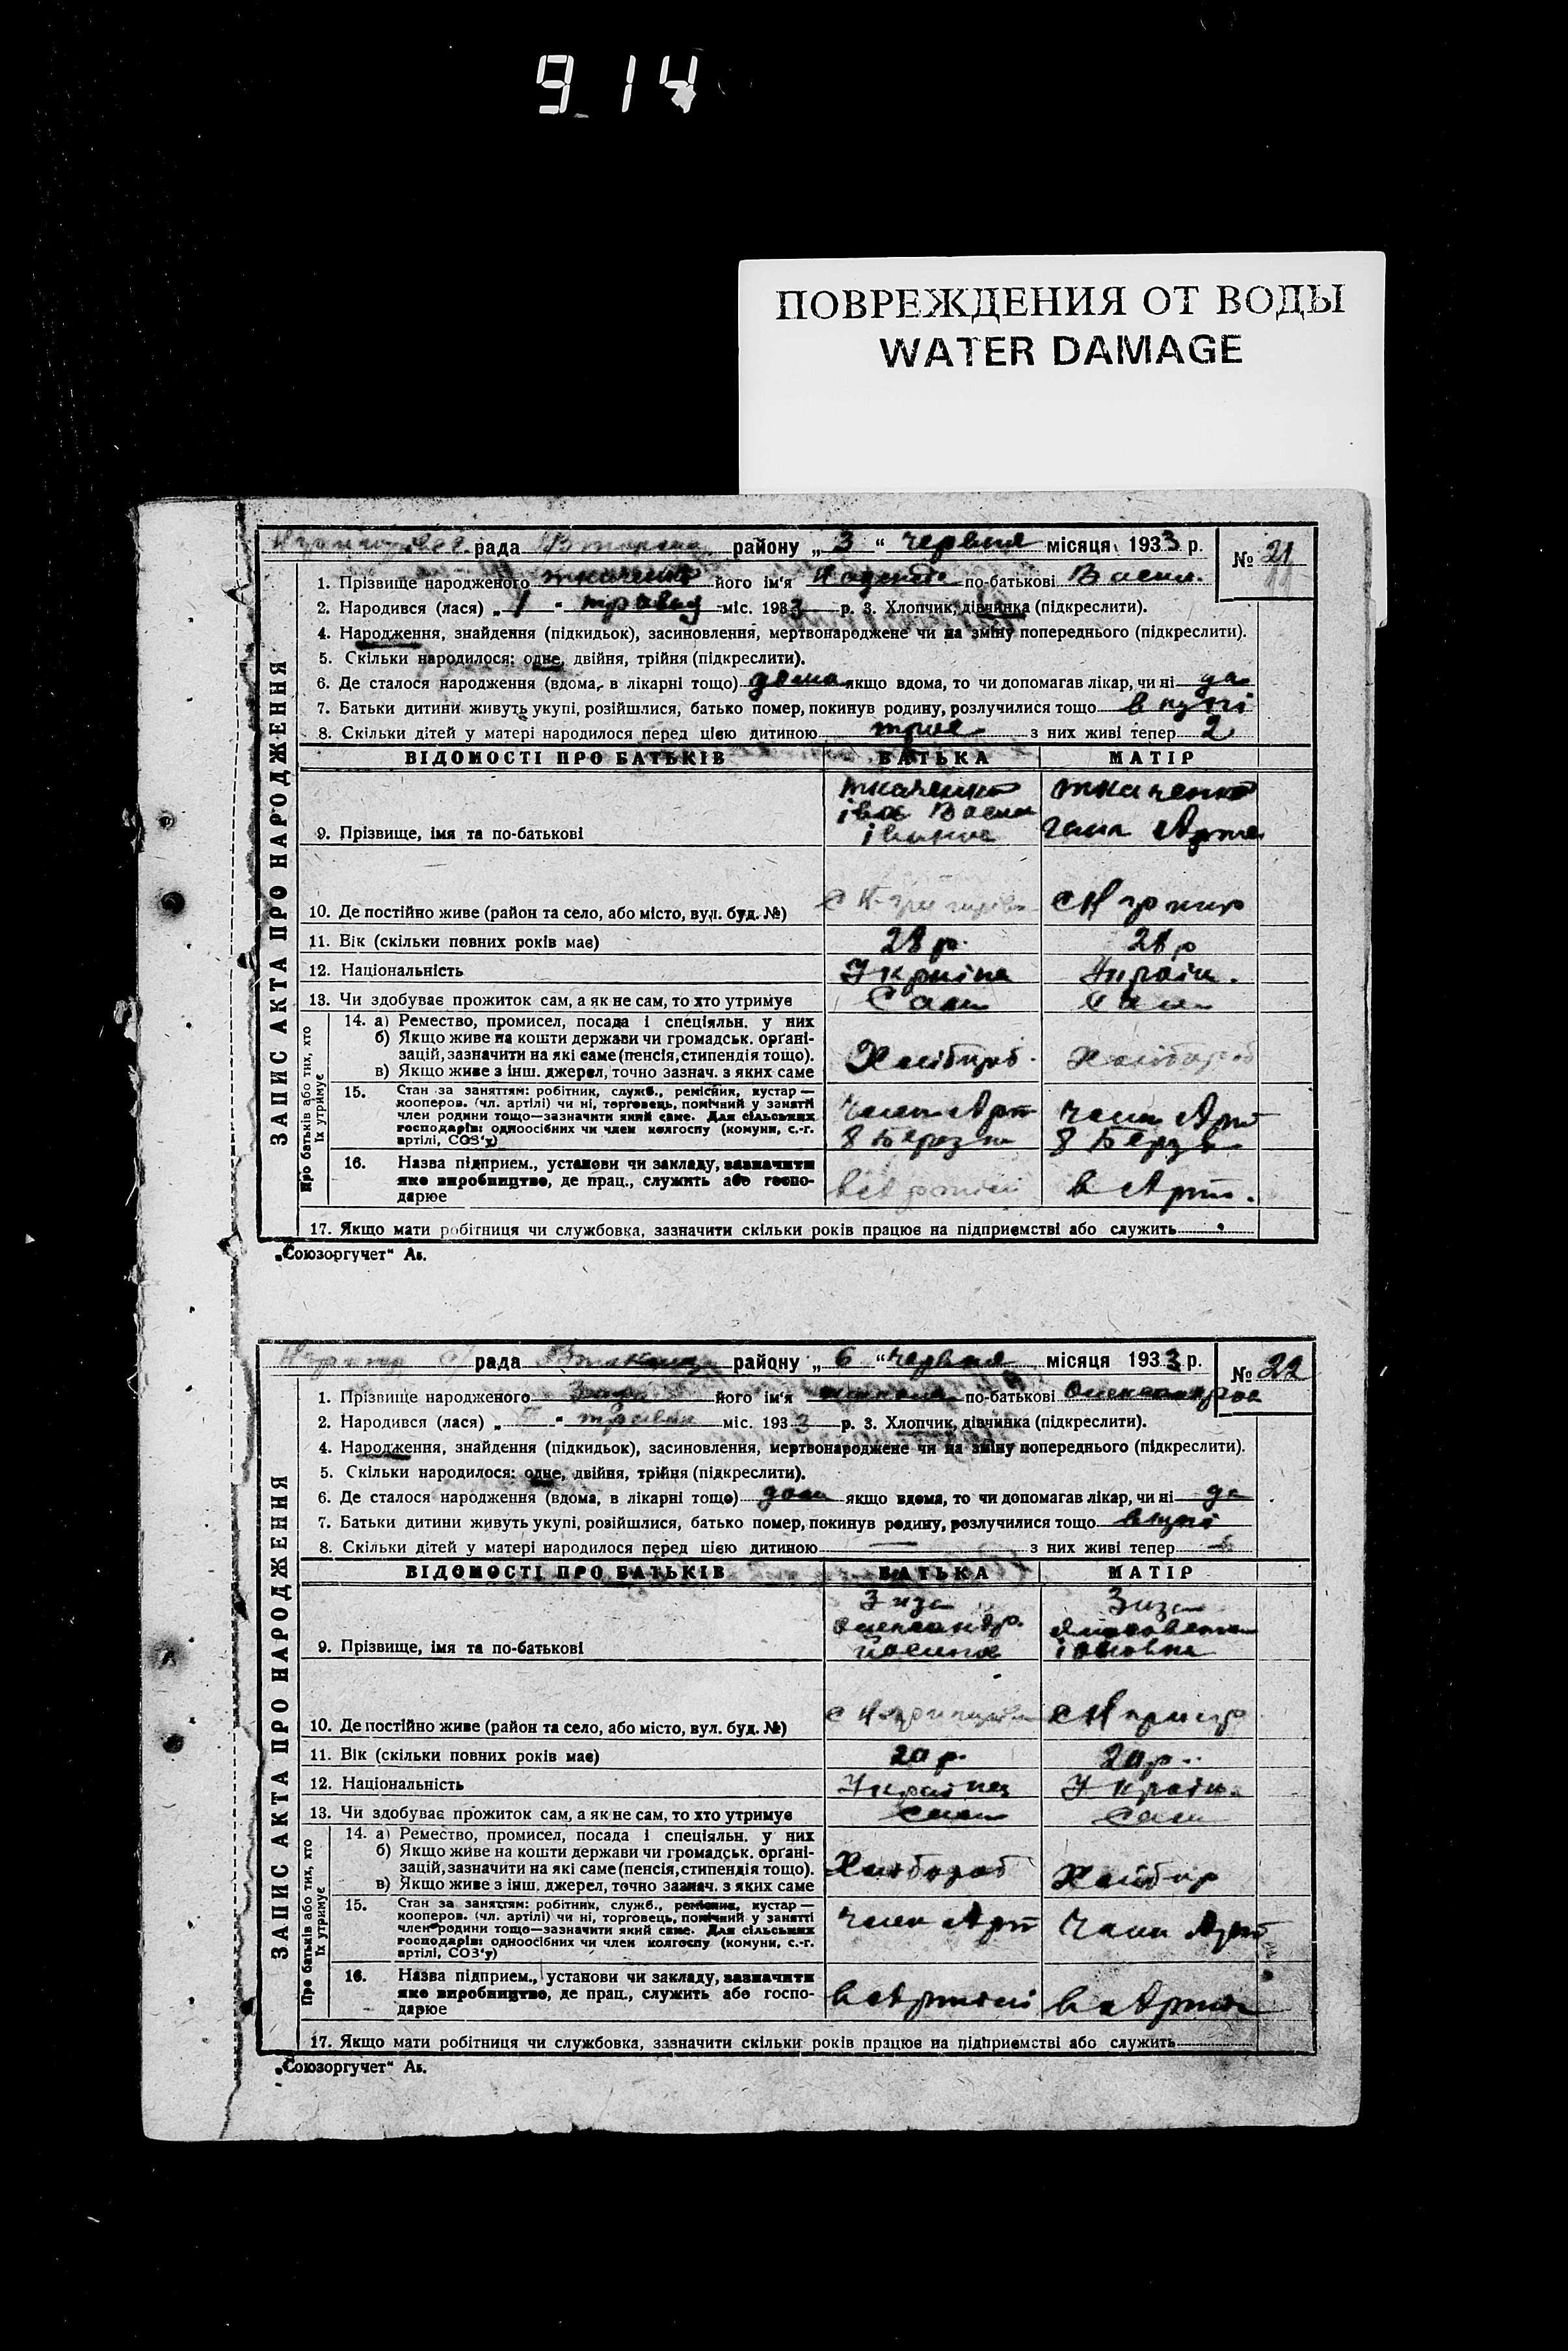 9 14
ПОВРЕЖДЕНИЯ ОТ ВОДЫ
WATER DAMAGE
рада району „ 3 “ червня місяця 1933 р.
№ 21
ЗАПИС АКТА ПРО НАРОДЖЕННЯ
1. Прізвище народженого ткаченко його ім'я по-батькові Васил.
2. Народився (лася) „ 1 " травня міс. 1933 р. 3. Хлопчик, дівчинка (підкреслити).
4. Народження, знайдення (підкидьок), засиновлення, мертвонароджене чи на зміну попереднього (підкреслити).
5. Скільки народилося: одне, двійня, трійня (підкреслити).
6. Де сталося народження (вдома, в лікарні тощо) дома якщо вдома, то чи допомагав лікар, чи ні да
7. Батьки дитини живуть укупі, розійшлися, батько помер, покинув родину, розлучилися тощо в купі
8. Скільки дітей у матері народилося перед цією дитиною троє з них живі тепер 2
ВІДОМОСТІ ПРО БАТЬКІВ БАТЬКА МАТІР
ткаченко ткаченко
9. Прізвище, імя та по-батькові
10. Де постійно живе (район та село, або місто, вул. буд. №)
11. Вік (скільки повних років має) 28 р. 28 р
12. Національність Україне Україн.
13. Чи здобуває прожиток сам, а як не сам, то хто утримує Сам Сам
Про батьків або тих, хто їх утримує
14. а) Ремество, промисел, посада і спеціяльн. у них
б) Якщо живе на кошти держави чи громадськ. органі-
зацій, зазначити на які саме (пенсія, стипендія тощо).
в) Якщо живе з інш. джерел, точно зазнач. з яких саме
Хлібороб. Хлібороб
15. Стан за заняттям: робітник, служб., ремісник, кустар —
кооперов. (чл. артілі) чи ні, торговець, помічний у занятті
член родини тощо—зазначити який саме. Для сільських
господарів: одноосібних чи член колгоспу (комуни, с.-г.
артілі, СОЗ'у)
член Арт член Арт
8 Березня 8 Берез
16. Назва підприєм., установи чи закладу, зазначити
яке виробництво, де прац., служить або госпо-
дарює
в Артілі в Арт.
17. Якщо мати робітниця чи службовка, зазначити скільки років працює на підприємстві або служить
„Союзоргучет“ Ав.
рада району „ 6 “ червня місяця 1933 р.
№ 22
ЗАПИС АКТА ПРО НАРОДЖЕННЯ
1. Прізвище народженого його ім'я по-батькові
2. Народився (лася) „ " травня міс. 1933 р. 3. Хлопчик, дівчинка (підкреслити).
4. Народження, знайдення (підкидьок), засиновлення, мертвонароджене чи на зміну попереднього (підкреслити).
5. Скільки народилося: одне, двійня, трійня (підкреслити).
6. Де сталося народження (вдома, в лікарні тощо) дома якщо вдома, то чи допомагав лікар, чи ні да
7. Батьки дитини живуть укупі, розійшлися, батько помер, покинув родину, розлучилися тощо вкупі
8. Скільки дітей у матері народилося перед цією дитиною — з них живі тепер
ВІДОМОСТІ ПРО БАТЬКІВ БАТЬКА МАТІР
Зиза Зиза
Олександр.
9. Прізвище, імя та по-батькові
10. Де постійно живе (район та село, або місто, вул. буд. №)
11. Вік (скільки повних років має) 20 р. 20 р.
12. Національність Українец Україн.
13. Чи здобуває прожиток сам, а як не сам, то хто утримує Сам Сам
Про батьків або тих, хто їх утримує
14. а) Ремество, промисел, посада і спеціяльн. у них
б) Якщо живе на кошти держави чи громадськ. органі-
зацій, зазначити на які саме (пенсія, стипендія тощо).
в) Якщо живе з інш. джерел, точно зазнач. з яких саме
Хлібороб Хлібор
15. Стан за заняттям: робітник, служб., ремісник, кустар —
кооперов. (чл. артілі) чи ні, торговець, помічний у занятті
член родини тощо—зазначити який саме. Для сільських
господарів: одноосібних чи член колгоспу (комуни, с.-г.
артілі, СОЗ'у)
член Арт член Арт
16. Назва підприєм., установи чи закладу, зазначити
яке виробництво, де прац., служить або госпо-
дарює
в Артілі в Артіл
17. Якщо мати робітниця чи службовка, зазначити скільки років працює на підприємстві або служить
„Союзоргучет“ Ав.